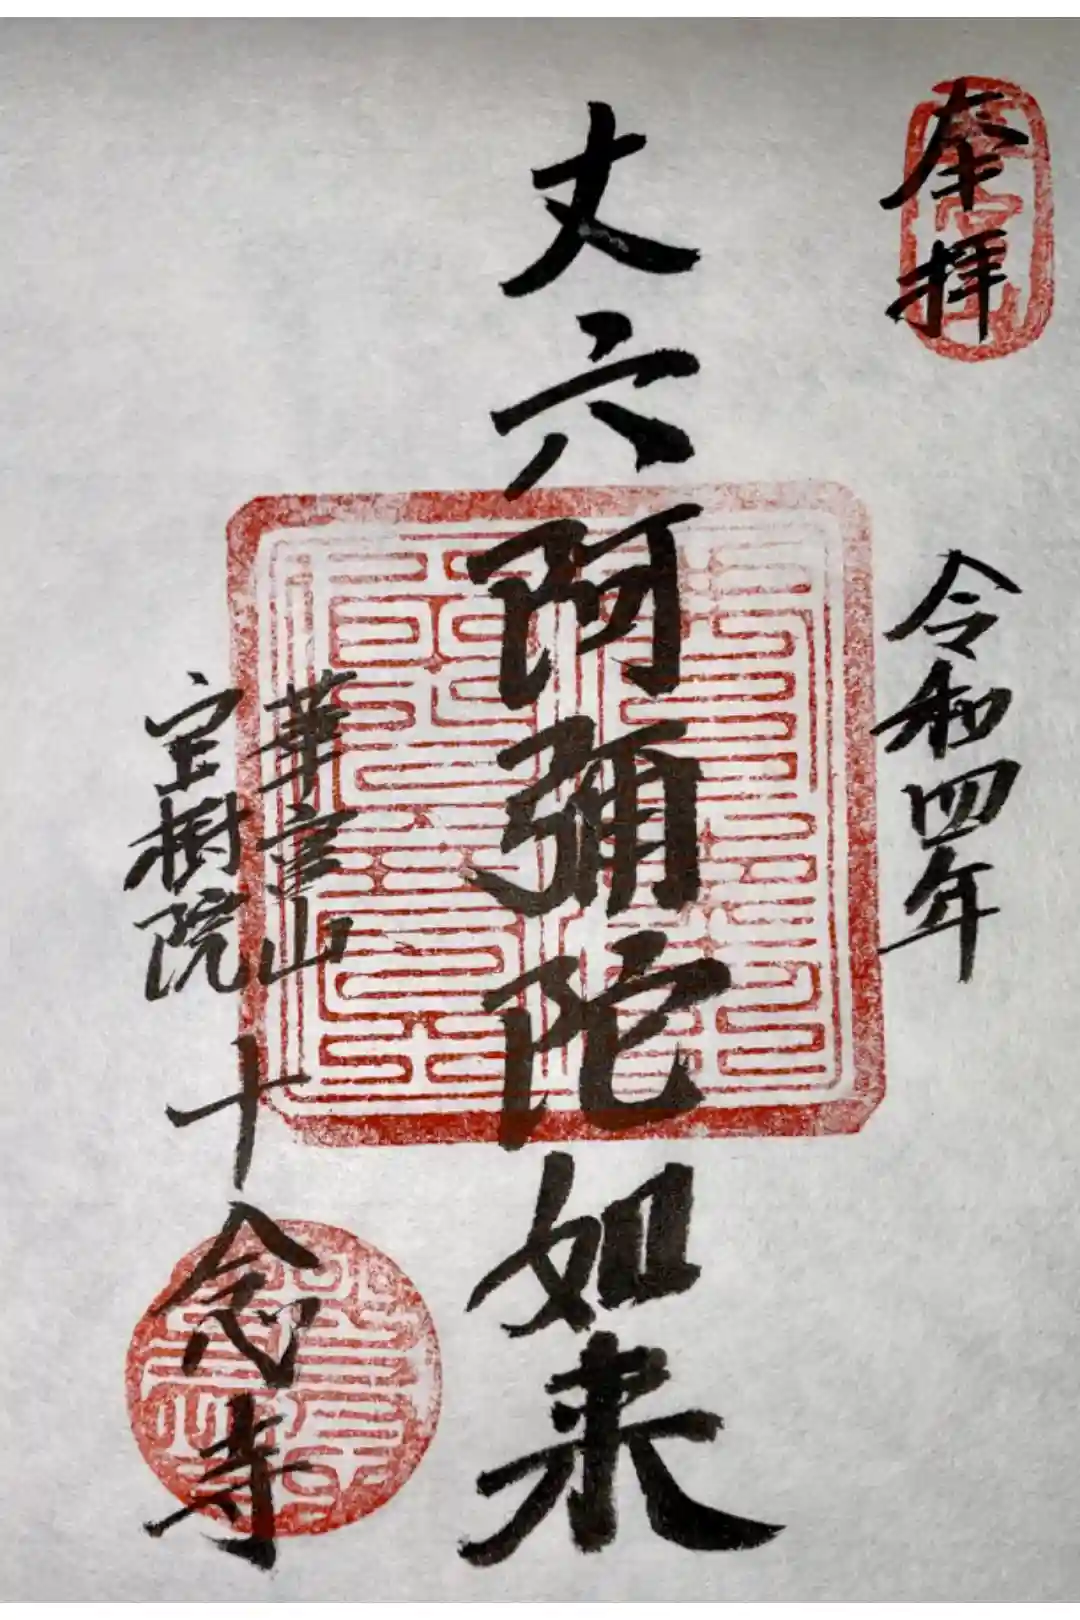 奉拝
令和四年
丈六阿彌陀如来
華臺山
宝樹院
十念寺